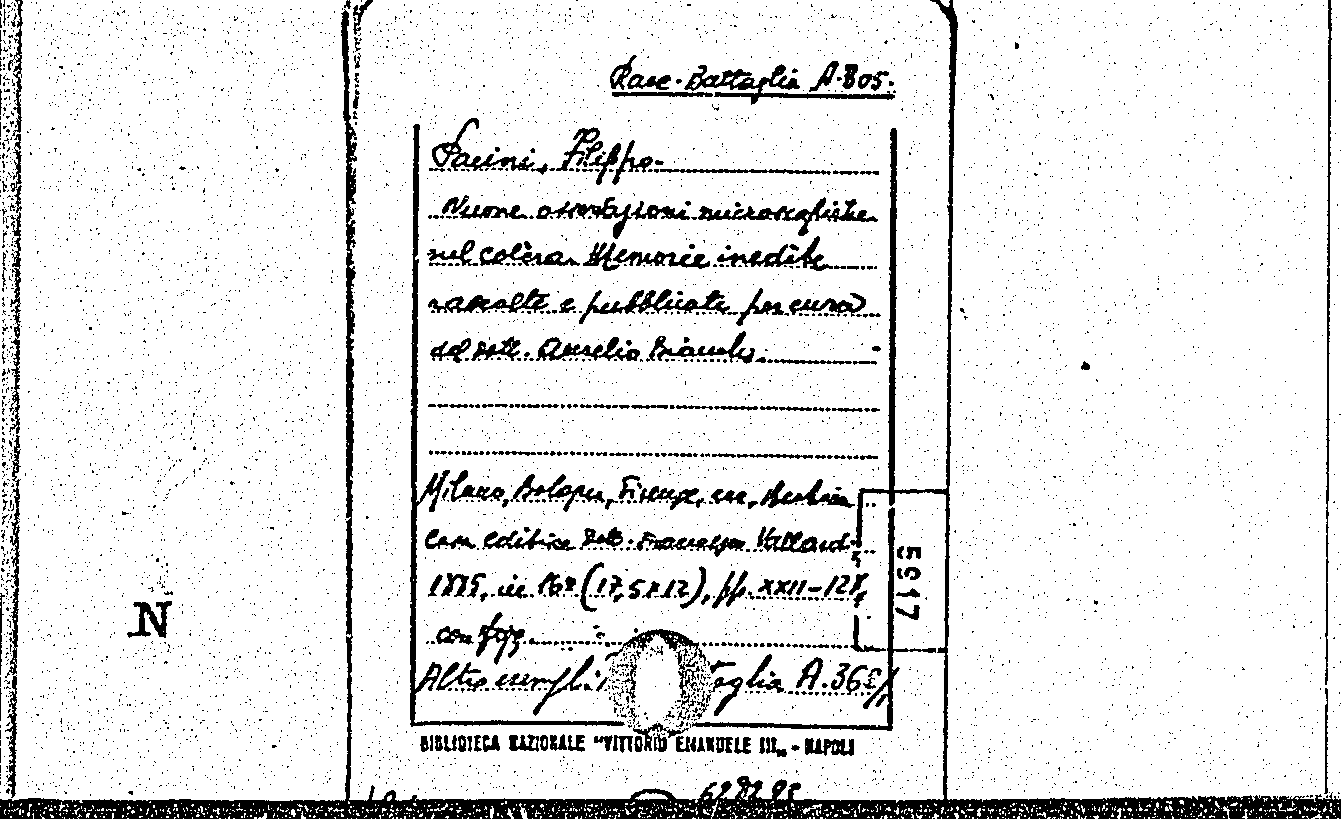 Racc. Battaglia A. 805.
Pacini, Filippo.
Nuove osservazioni microscopiche
nel colèra. Memorie inedite
raccolte e pubblicate per cura
del dott. Aurelio Bianchi.
Milano, Bologna, Firenze, ecc,
Casa editrice Dott. Francesco Vallardi
1885, in 16º (17,5x12), pp. XXII-128,
con figg.
Altro A.
BIBLIOTECA NAZIONALE "VITTORIO EMANUELE III„ - NAPOLI
5917
N